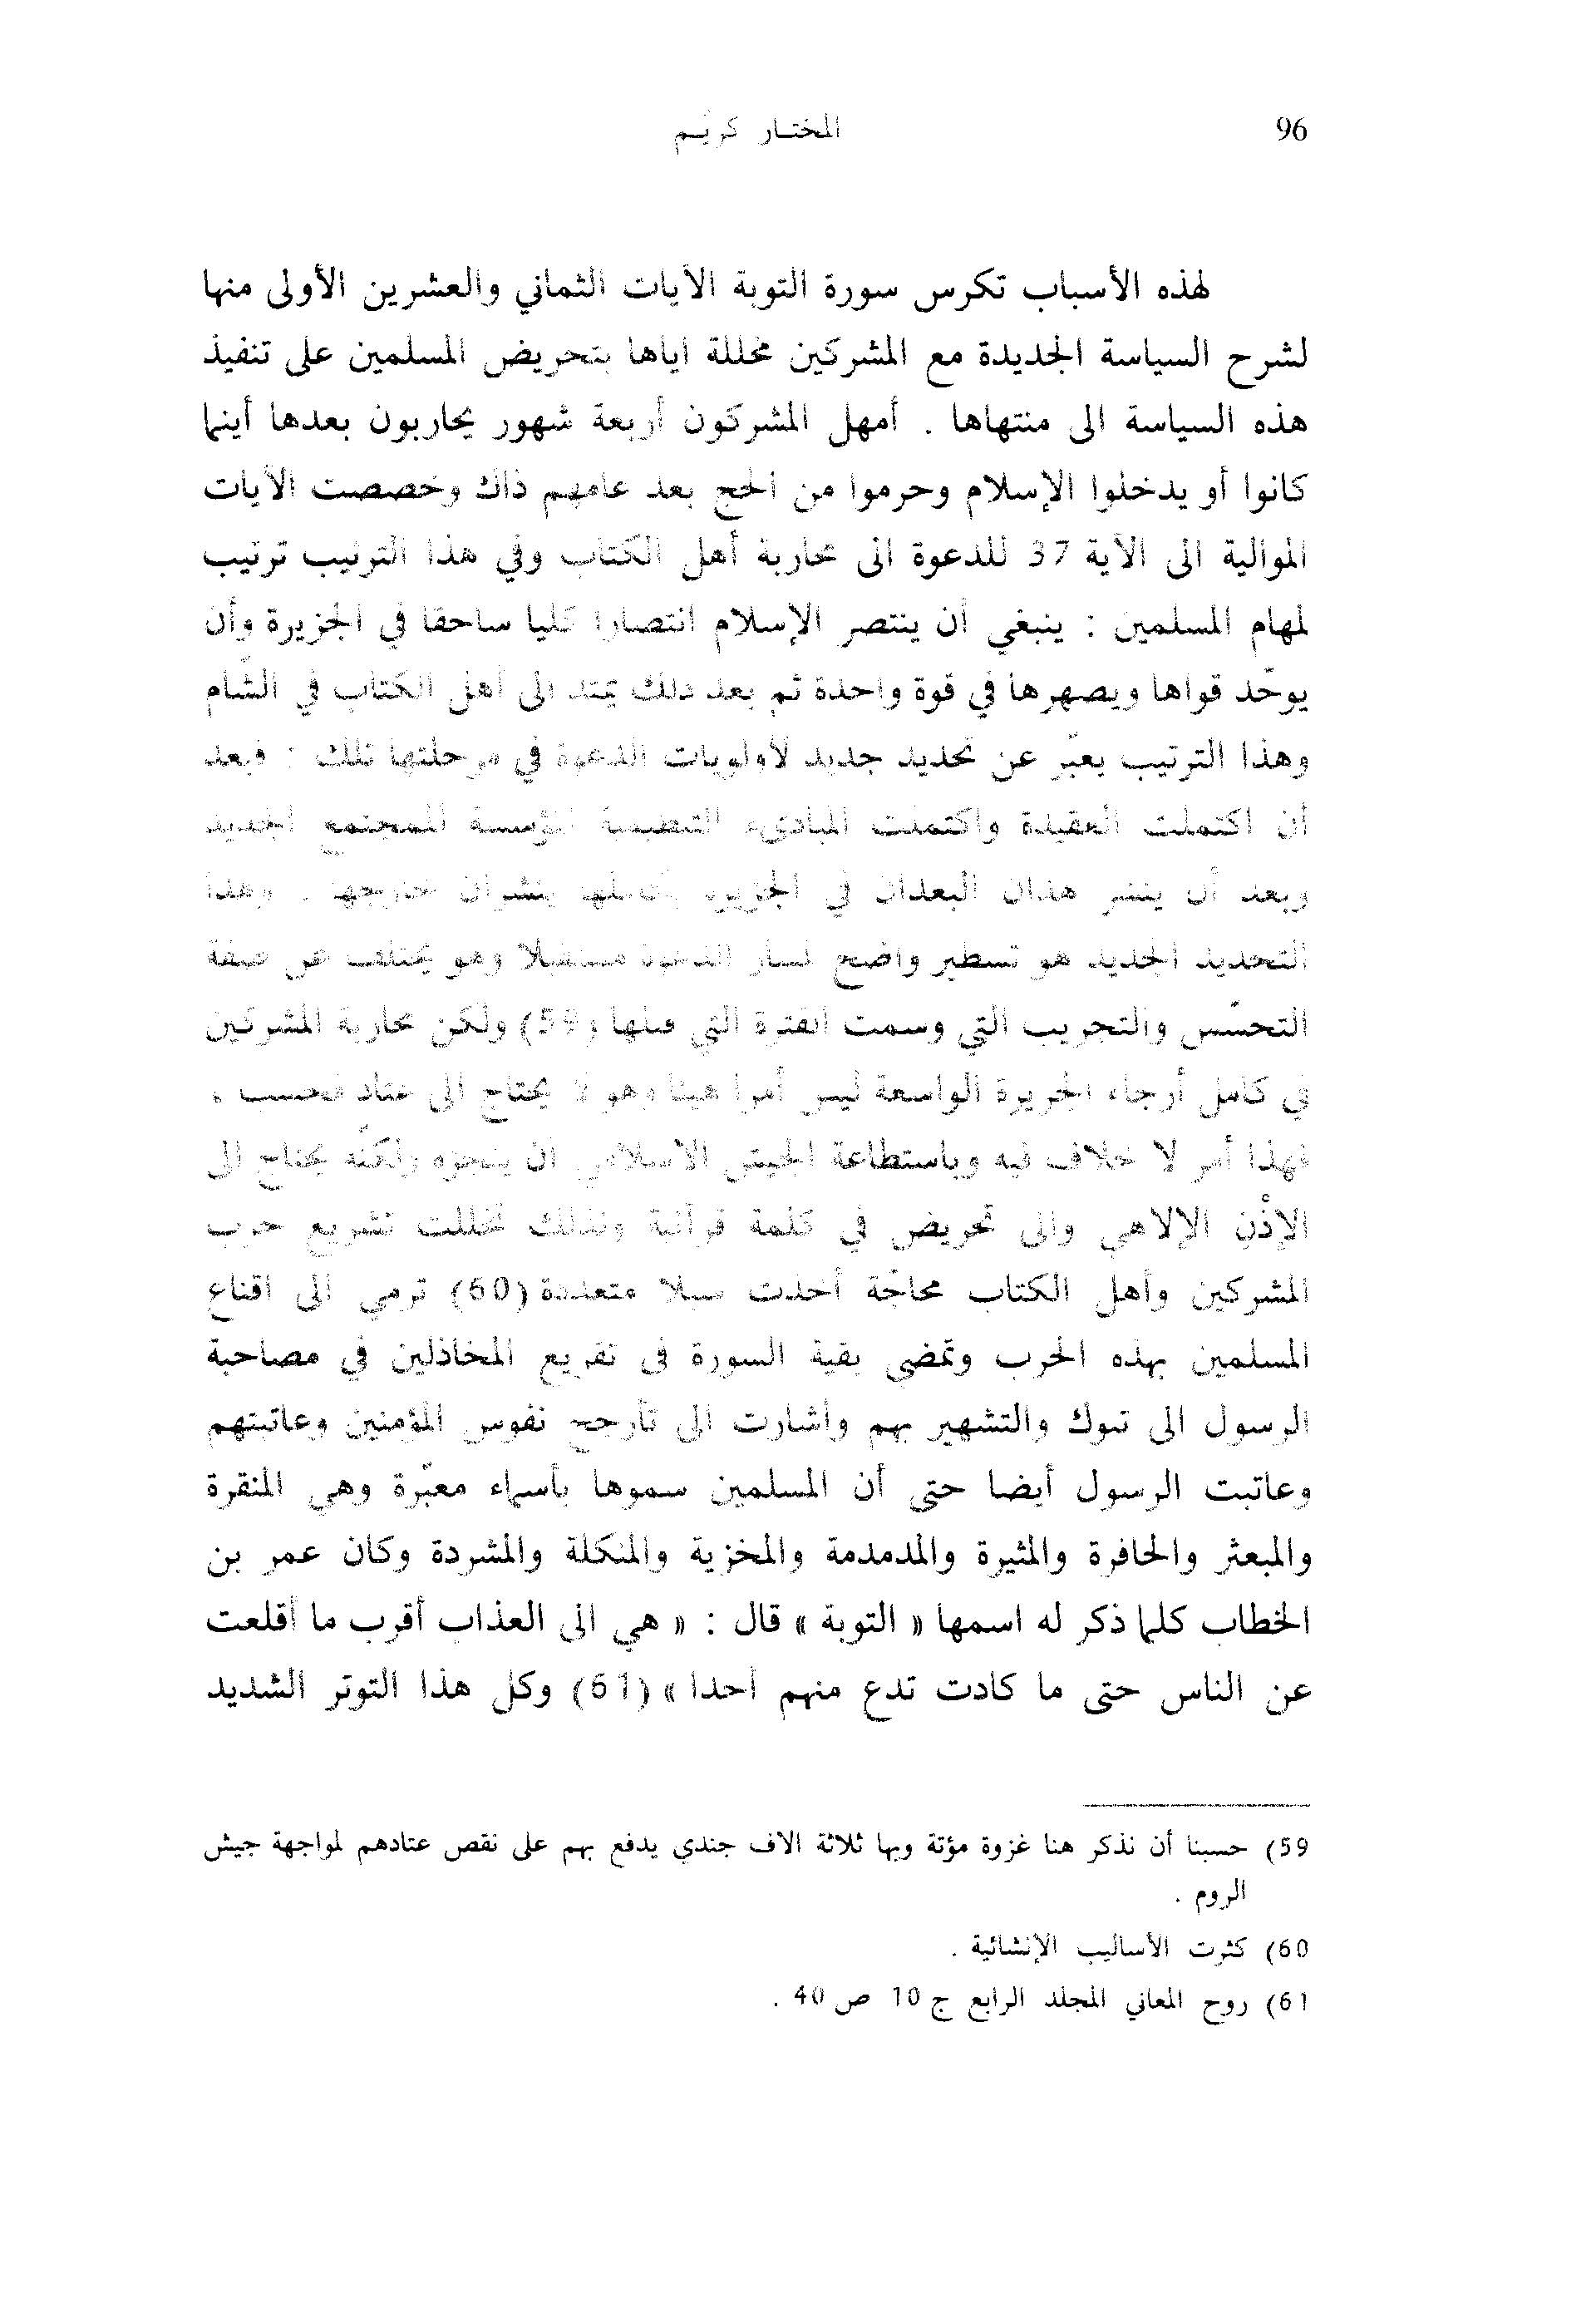 96
المختار كريّم
لهذه الأسباب تكرس سورة التوبة الآيات الثماني والعشرين الأولى منها
لشرح السياسة الجديدة مع المشركين مخللة اياها بتحريض المسلمين على تنفيذ
هذه السياسة الى منتهاها . أمهل المشركون أربعة شهور يحاربون بعدها أينما
كانوا أو يدخلوا الإسلام وحرموا من الحج بعد عامهم ذاك وخصصت الآيات
الموالية الى الآية 37 للدعوة الى محاربة أهل الكتاب وفي هذا الترتيب ترتيب
لمهام المسلمين : ينبغي أن ينتصر الإسلام انتصارا كليا ساحقا في الجزيرة وأن
يوحّد قواها ويصهرها في قوة واحدة ثم بعد ذلك يمتد الى أهل الكتاب في الشّام
وهذا الترتيب يعبّر عن تحديد جديد لأولويات الدعوة في مرحلتها تلك : فبعد
أن اكتملت العقيدة واكتملت المبادىء التنظيمية المؤسسة للمجتمع الجديد
وبعد أن ينتشر هذان البعدان في الجزيرة بكاملها ينشران خارجها . وهذا
التحديد الجديد هو تسطير واضح لمسار الدعوة مستقبلا وهو يختلف عن صفة
التحسّس والتجريب التي وسمت الفترة التي قبلها (59) ولكن محاربة المشركين
في كامل أرجاء الجزيرة الواسعة ليس أمرا هينا وهو لا يحتاج الى عتاد فحسب ،
فهذا أمر لا خلاف فيه وباستطاعة الجيش الاسلامي أن ينجزه ولكنّه يحتاج الى
الإذن الإلاهي والى تحريض في كلمة قرآنية ولذلك تخللت تشريع حرب
المشركين وأهل الكتاب محاجّة أخذت سبلا متعددة (60) ترمي الى اقناع
المسلمين بهذه الحرب وتمضي بقية السورة في تقريع المخاذلين في مصاحبة
الرسول الى تبوك والتشهير بهم وأشارت الى تأرجح نفوس المؤمنين وعاتبتهم
وعاتبت الرسول أيضا حتى أن المسلمين سموها بأسماء معبّرة وهي المنقرة
والمبعثر والحافرة والمثيرة والمدمدمة والمخزية والمنكلة والمشردة وكان عمر بن
الخطاب كلما ذكر له اسمها « التوبة » قال : « هي الى العذاب أقرب ما أقلعت
عن الناس حتى ما كادت تدع منهم أحدا » (61) وكل هذا التوتر الشديد
59) حسبنا أن نذكر هنا غزوة مؤتة وبها ثلاثة الاف جندي يدفع بهم على نقص عتادهم لمواجهة جيش
الروم .
60) كثرت الأساليب الإنشائية .
61) روح المعاني المجلد الرابع ج 10 ص 40 .